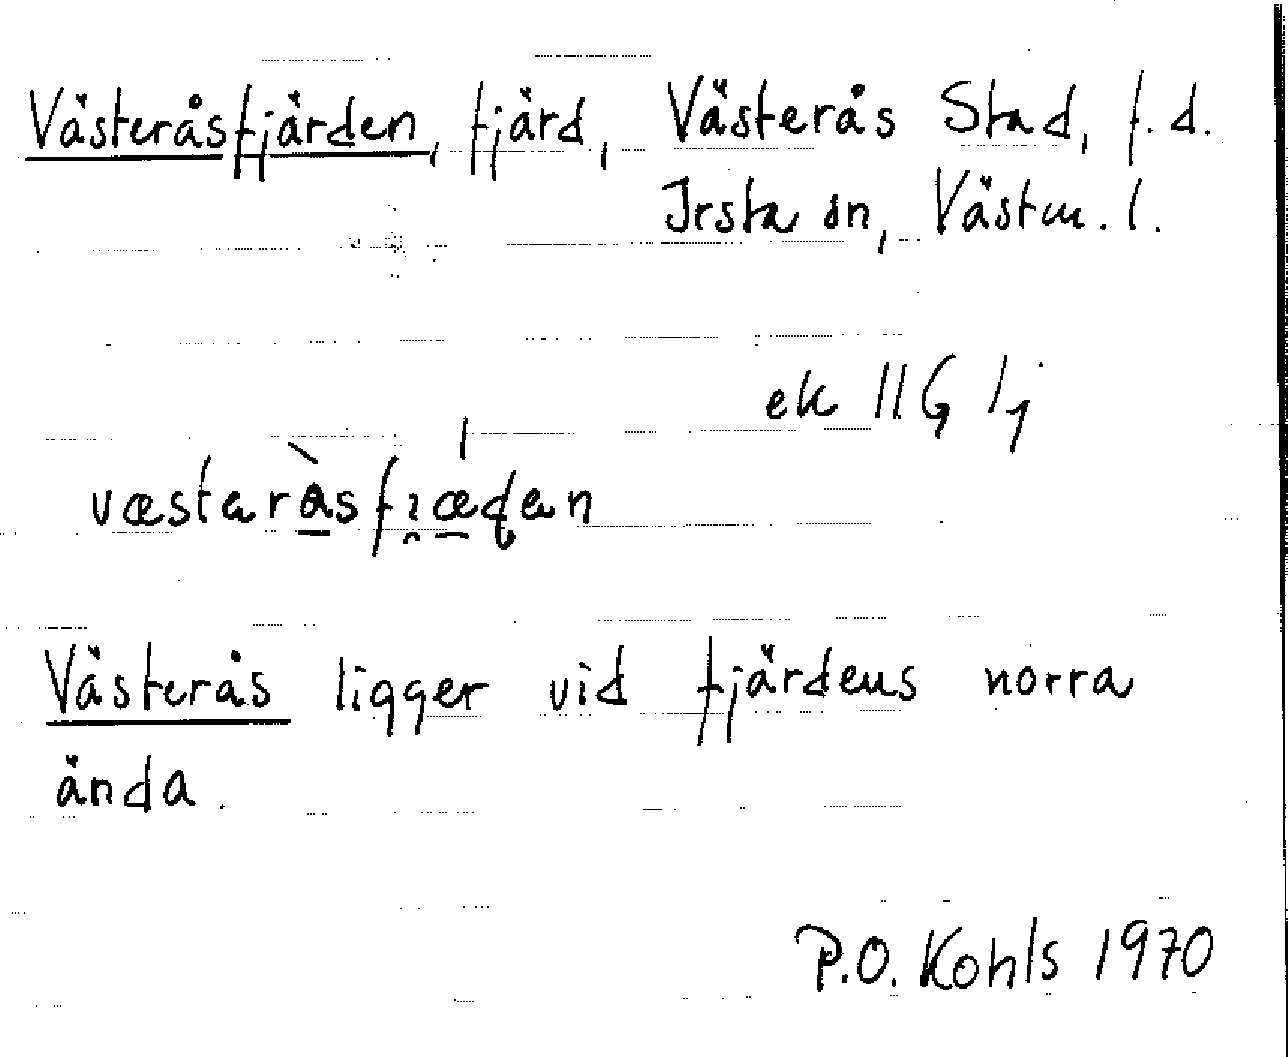 Västeråsfjärden, fjärd, Västerås Stad, f.d.
Irsta sn, Västm. l.
ek 11G 1j
væstaråsfɿæḍan
Västerås ligger vid fjärdens norra
ända.
P.O. Kohls 1970